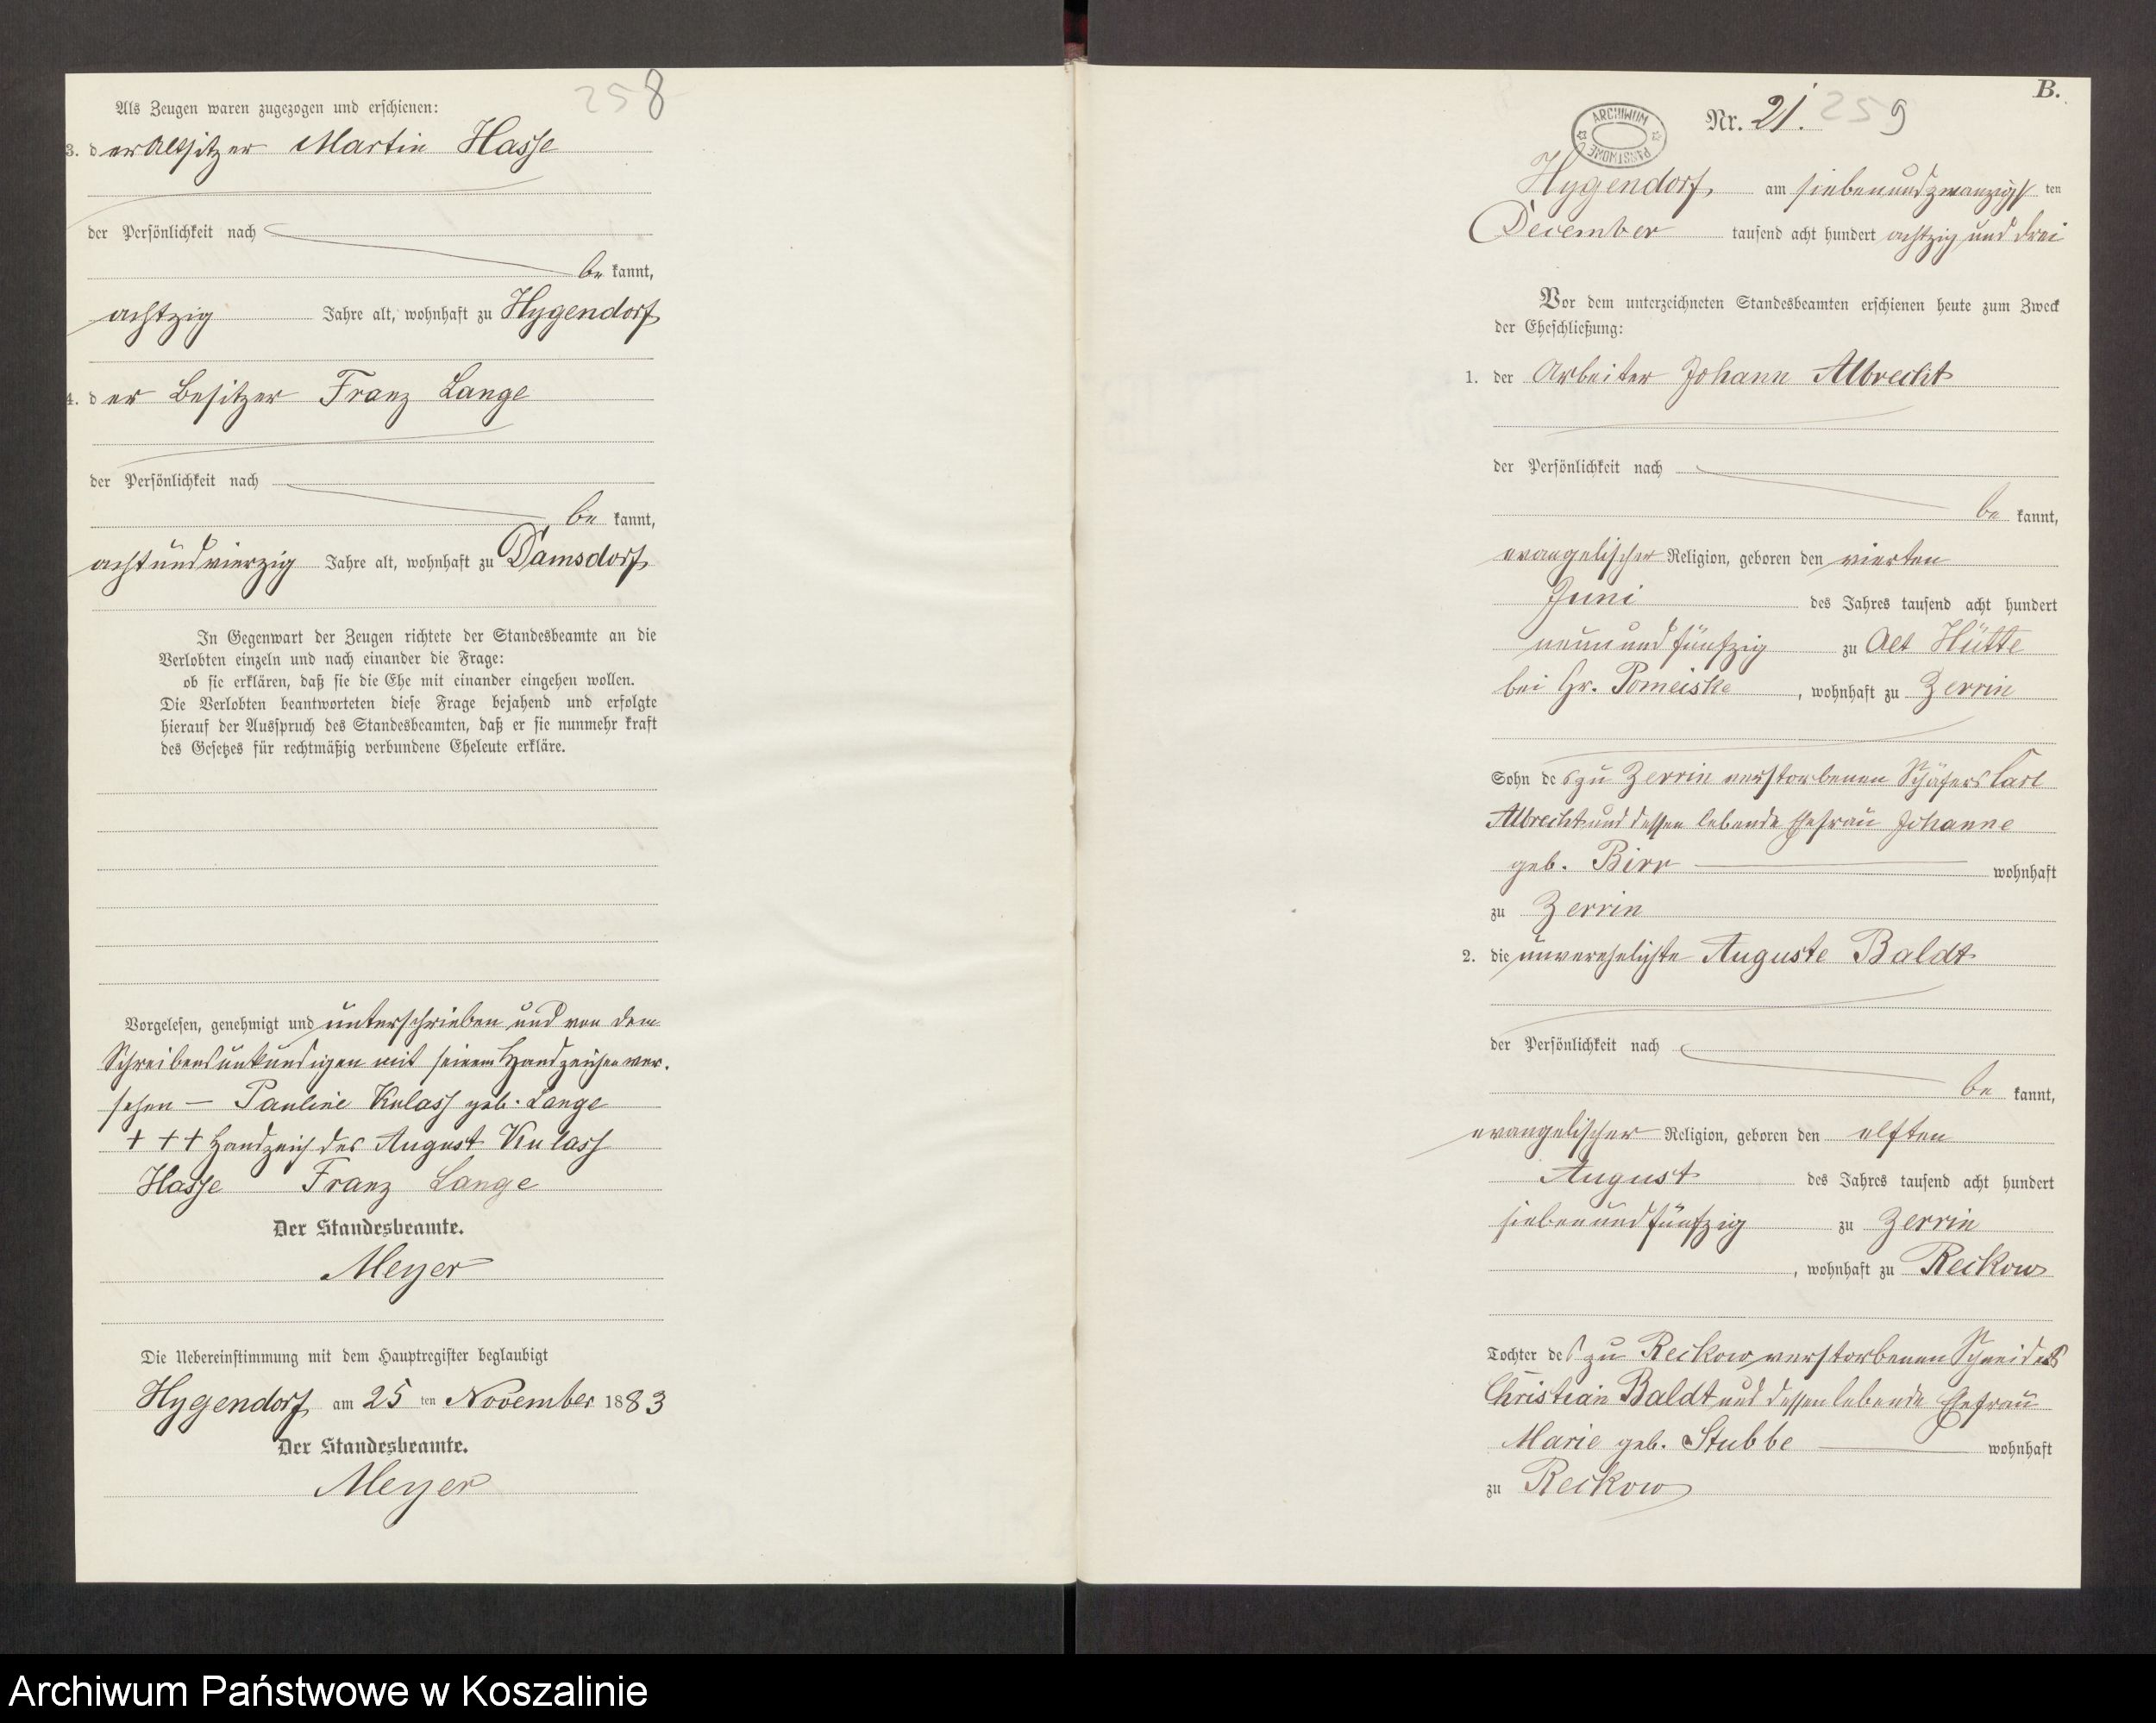 258
Als Zeugen waren zugezogen und erschienen:
3. der Altsitzer Martin Hasse
der Persönlichkeit nach
be kannt,
achtzig Jahre alt, wohnhaft zu Hygendorf
4. der Besitzer Franz Lange
der Persönlichkeit nach
be kannt,
achtundvierzig Jahre alt, wohnhaft zu Damsdorf
In Gegenwart der Zeugen richtete der Standesbeamte an die
Verlobten einzeln und nach einander die Frage:
ob sie erklären, daß sie die Ehe mit einander eingehen wollen.
Die Verlobten beantworteten diese Frage bejahend und erfolgte
hierauf der Ausspruch des Standesbeamten, daß er sie nunmehr kraft
des Gesetzes für rechtmäßig verbundene Eheleute erkläre.
Vorgelesen, genehmigt und unterschrieben und von dem
Schreibensunkundigen mit seinem Handzeichen ver.
sehen — Pauline Kulass geb. Lange
+ + + Handzeich des August Kulass
Hasse Franz Lange
Der Standesbeamte.
Meyer
Die Uebereinstimmung mit dem Hauptregister beglaubigt
Hygendorf am 25 ten November 1883
Der Standesbeamte.
Meyer
B.
ARCHIWUM PAŃSTWOWE
Nr. 21. 259
Hygendorf, am siebenundzwanzigs ten
December tausend acht hundert achtzig und drei
Vor dem unterzeichneten Standesbeamten erschienen heute zum Zweck
der Eheschließung:
1. der Arbeiter Johann Albrecht
der Persönlichkeit nach
be kannt,
evangelischer Religion, geboren den vierten
Juni des Jahres tausend acht hundert
neunundfünfzig zu Alt Hütte
bei Gr. Pomeiske, wohnhaft zu Zerrin
Sohn des zu Zerrin verstorbenen Schäfers Carl
Albrecht und dessen lebende Ehefrau Johanne
geb. Birr wohnhaft
zu Zerrin
2. die unverehelichte Auguste Baldt
der Persönlichkeit nach
be kannt,
evangelischer Religion, geboren den elften
August des Jahres tausend acht hundert
siebenundfünfzig zu Zerrin
, wohnhaft zu Reckow
Tochter des zu Reckow verstorbenen Schneiders
Christian Baldt und dessen lebende Ehefrau
Marie geb. Stubbe wohnhaft
zu Reckow
Archiwum Państwowe w Koszalinie